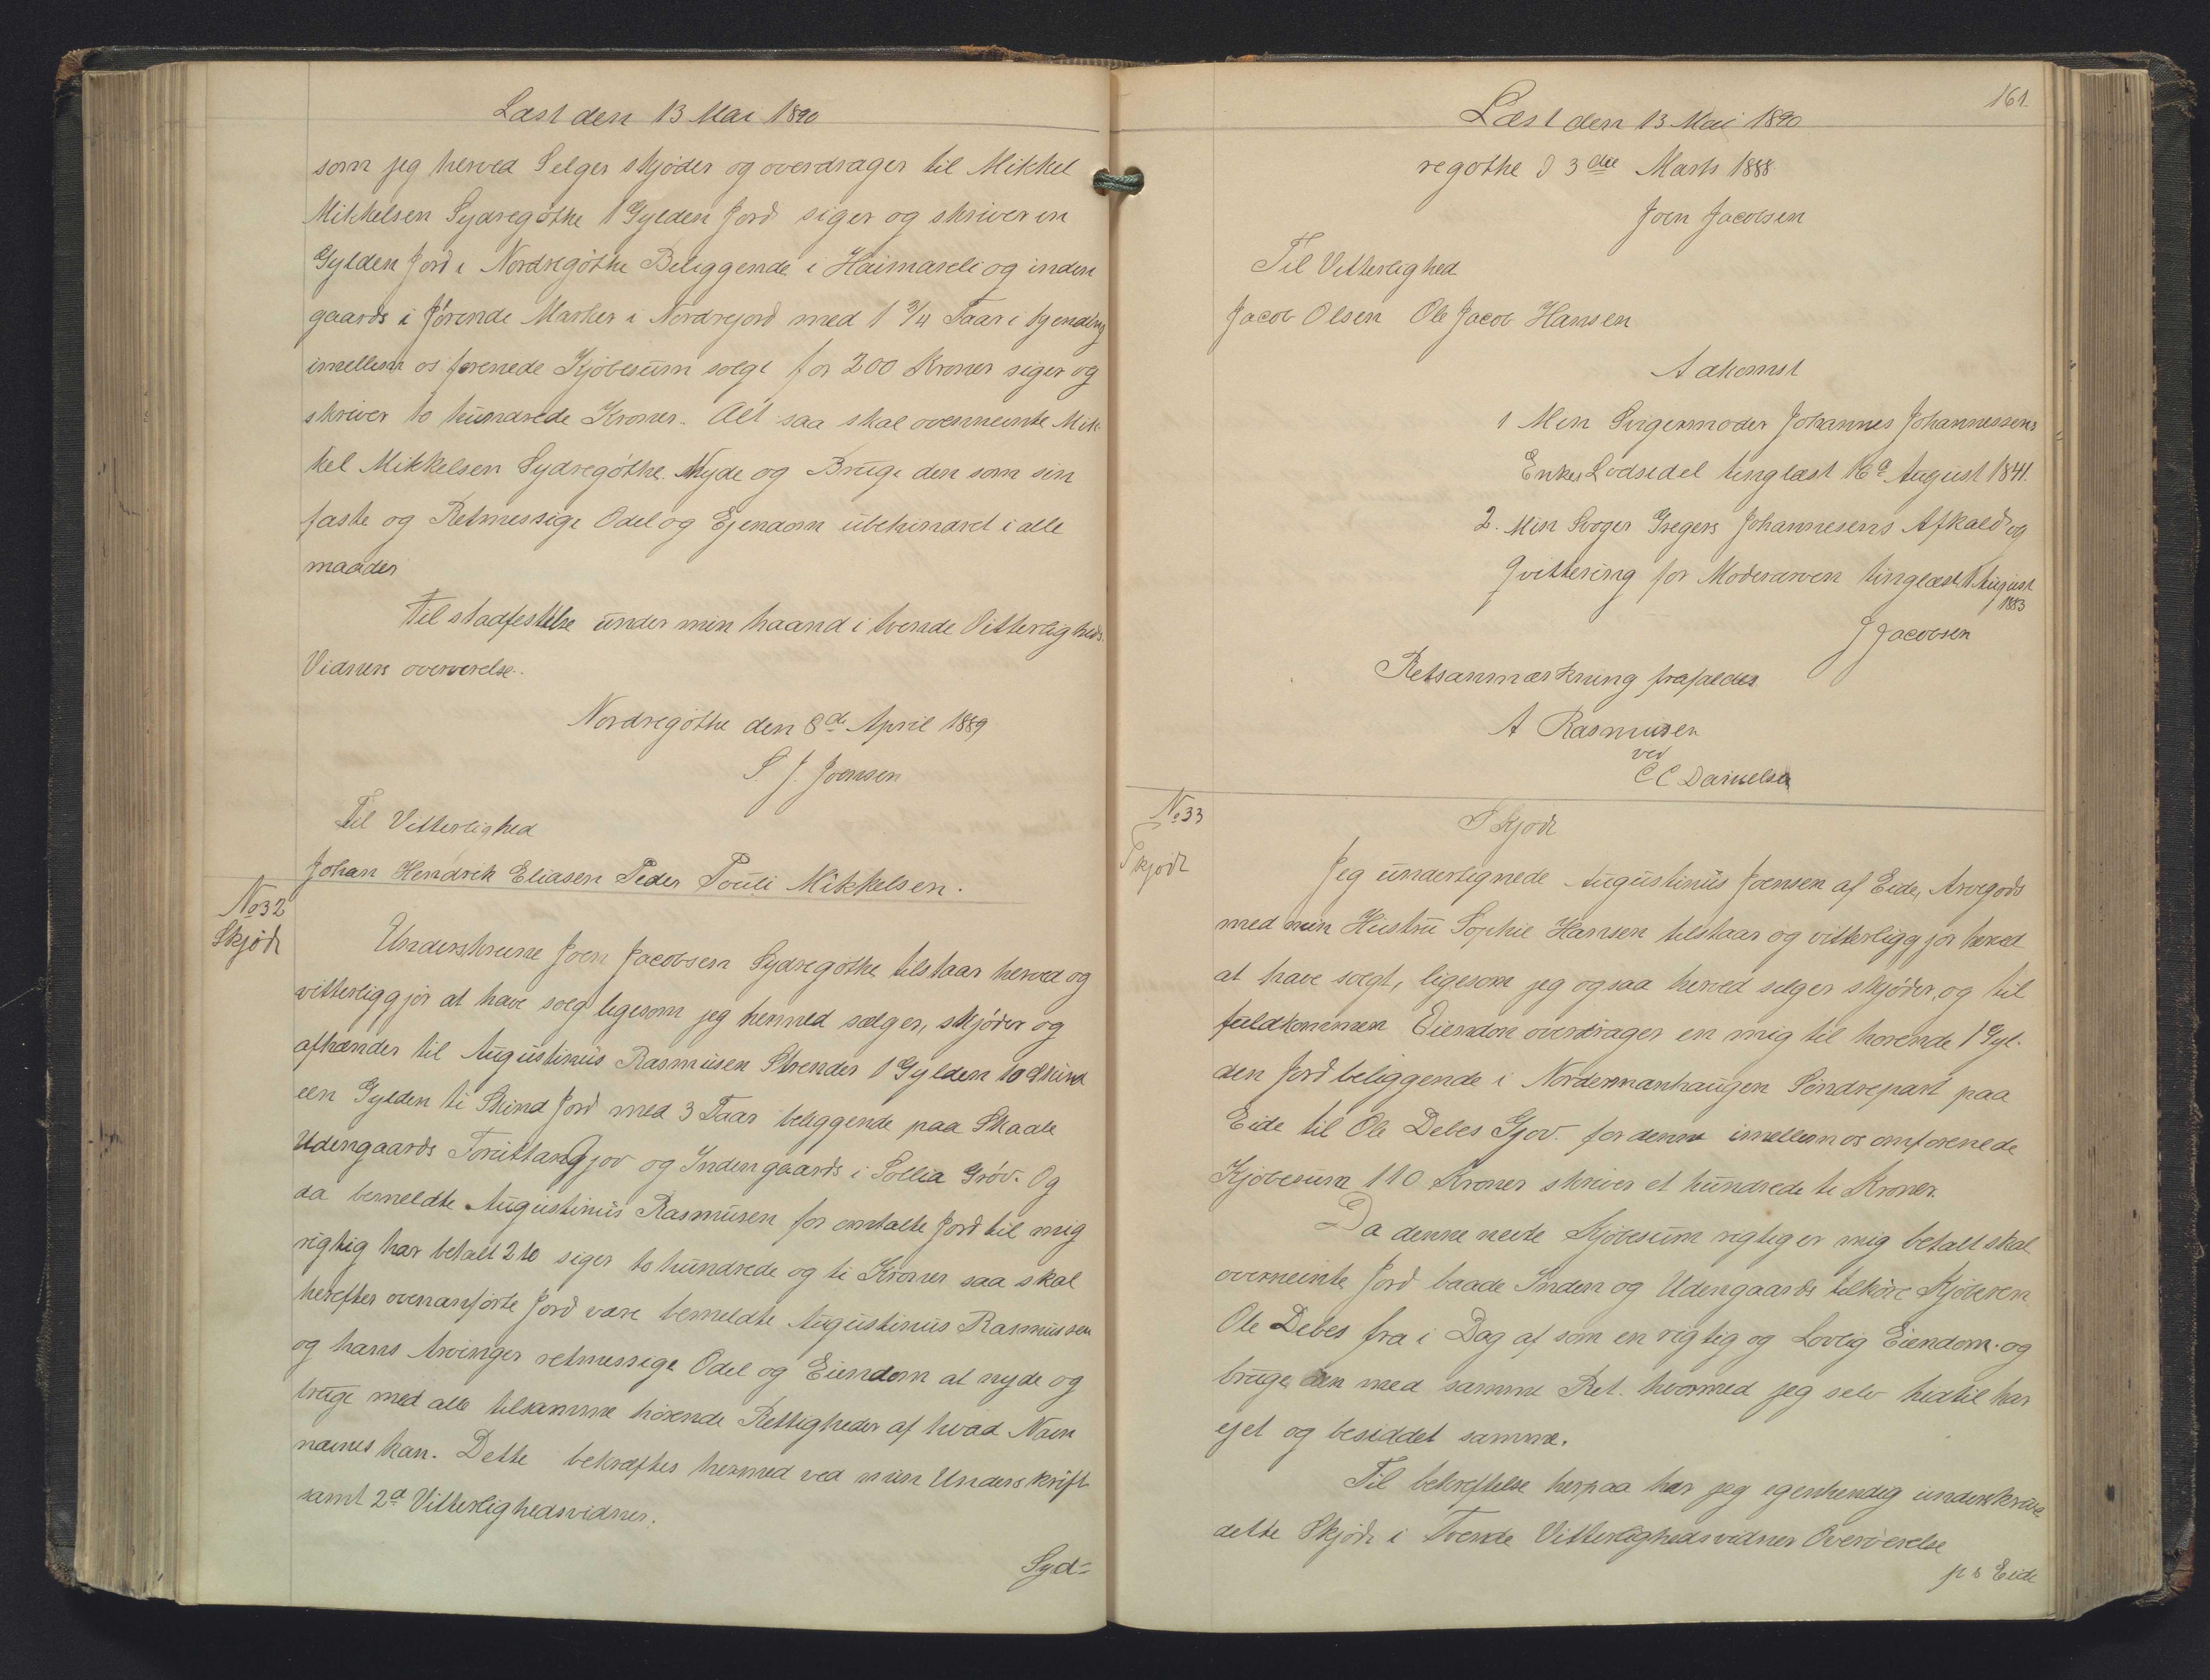 Læst den 13 Mai 1890
som jeg herved Selger skjøder og overdrager til Mikkel
Mikkelsen Sydregøthe 1 Gylden Jord siger og skriver en
Gylden Jord i Nordregøthe Beliggende i Haimareli og inden
gaards i Jørende Marker i Nordrejord med 1 3/4 Faar i
imellem os forenede Kjøbesum solgt for 200 Kroner siger og
skriver to hundrede Kroner. Alt saa skal ovenneunte Mik-
kel Mikkelsen Sydregøthe. Nyde og Bruge den som sin
faste og Retmessige Odel og Ejendom ubehindret i alle
maader
Til stadfestelse under min haand i tvende Vitterligheds.
Vidners oververelse.
Nordregøthe den 8de April 1889
S. J. Joensen
Til Vitterlighed
Johan Hendrik Eliasen Peder Pouli Mikkelsen.
No 32
Skjøde
Underskrevne Joen Jacobsen Sydregøthe tilstaar herved og
vitterliggjør at have solg ligesom jeg hermed sælger, skjøder og
afhænder til Augustinus Rasmusen Strender 1 Gylden 10 Skind
een Gylden ti Skind Jord med 3 Faar beliggende paa Skaale
Udengaards Gjov og Indengaards i Sollia Grøv. Og
da bemeldte Augustinus Rasmusen for omtalte Jord til mig
rigtig har betalt 210 siger to hundrede og ti Kroner saa skal
herefter ovenanførte Jord være bemeldte Augustinus Rasmussen
og hans Arvinger retmessige Odel og Eiendom at nyde og
bruge med alle tilsamme hørende Rettigheder af hvad Navn
nævnes kan. Dette bekræftes hermed ved min Underskrift
samt 2de Vitterlighedsvidner.
Syd=
161.
Læst den 13 Mai 1890
regøthe d 3die Marts 1888
Joen Jacobsen
Til Vitterlighed
Jacob Olsen Ole Jacob Hansen
Adkomst
1 Min Svigermoder Johannes Johannessens
Enkes Lodsedel tinglæst 16d August 1841.
2. Min Svoger Gregers Johannesens Afkald og
Qvittering for Moderarven tinglæst 1 August
1883
J Jacobsen
Retsanmærkning frafaldes
A Rasmusen
ved
C C Danielsen
No 33
Skjøde
Skjøde
Jeg undertegnede Augustinus Joensen af Eide, Arvegods
med min Hustru Sophie Hansen tilstaar og vitterliggjør herved
at have solgt, ligesom jeg ogsaa herved selger skjøder, og til
fuldkommen Eiendom overdrager en mig til horende 1 Gyl-
den Jord beliggende i Nordermanhaugen Søndrepart paa
Eide til Ole Debes Gjov. for denne imellem os omforenede
Kjøbesum 110 Kroner skriver et hundrede ti Kroner.
Da denne nevte Kjøbesum rigtig er mig betalt skal
overneinte Jord baade Inden og Udengaards tilhøre Kjøberen
Ole Debes fra i Dag af som en rigtig og Lovlig Eiendom. og
bruge den med samme Ret. hvormed jeg selv hidtil har
ejet og besiddet samme.
Til bekreftelse herpaa har jeg egenhendig underskrive
dette Skjøde i Tvende Vitterlighedsvidner Oververelse
p t Eide